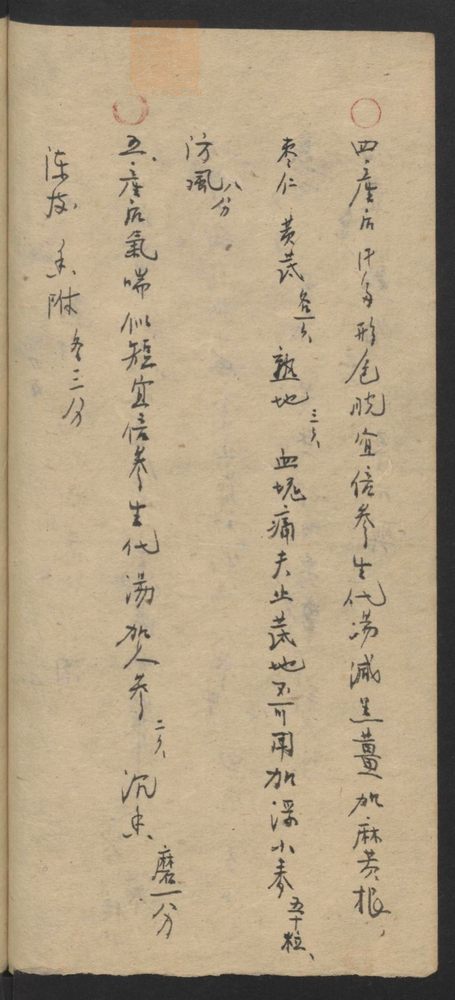 四、產后汗多形色脫宜倍參生代湯減黑薑加麻黃根、
棗仁 黃芪各一錢 熟地三錢 血塊痛未止芪地不可用加浮小麥五十粒、
防風八分
五、產后氣喘似短宜倍參生代湯加人參二錢 沉香磨一分
陳皮 香附各三分